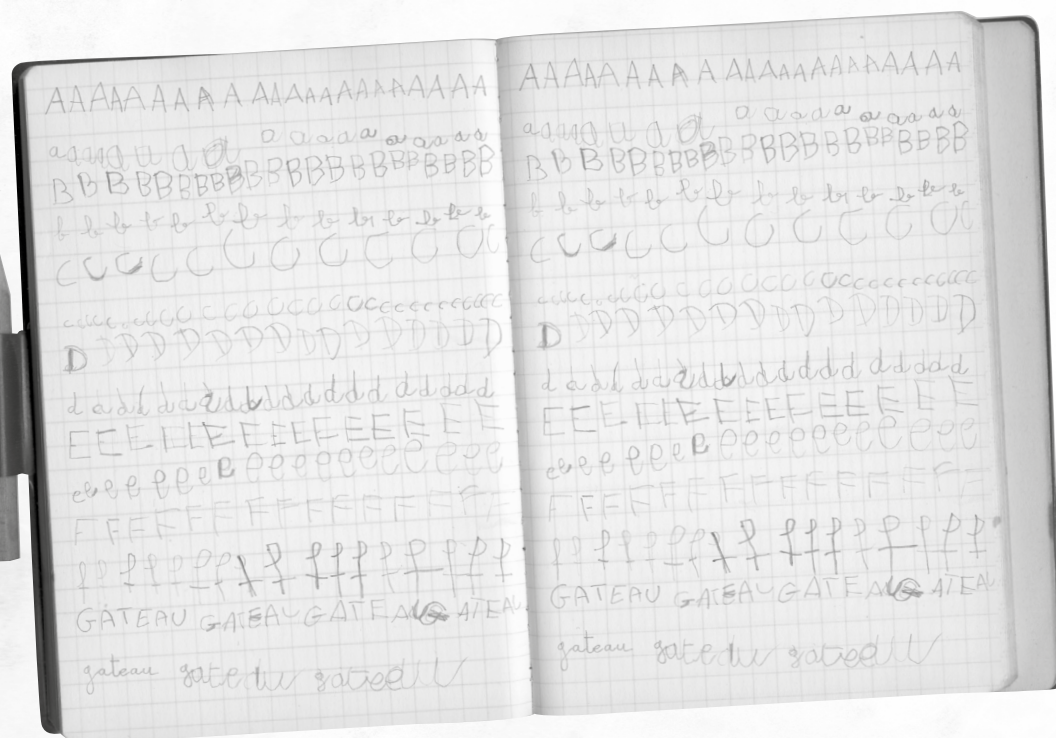 AAAAA A A A A AAAAAAAAAAAAAA
aaaaa u a a a a a a a a a a a a
B B B B B B B B B B B B B B B B B B B B
b b b b b b b b b b b b b b
C C C C C C C C C C C C C
c c c c c c c c c c c c c c c c c c c c c c c
D D D D D D D D D D D D D D D
d a d d d a d d d d d d d d d d a d
E E E E E E E E E E E E E E E
e e e e e e e e e e e e e e e e e e
F F F F F F F F F F F F F F
f f f f f f f f f f f f f f f f
GATEAU GATEAU GATEAU GATEAU
gateau gateau
AAAAA A A A A AAAAAAAAAAAAAA
aaaaa u a a a a a a a a a a a a
B B B B B B B B B B B B B B B B B B B B
b b b b b b b b b b b b b b
C C C C C C C C C C C C C
c c c c c c c c c c c c c c c c c c c c c c c
D D D D D D D D D D D D D D D
d a d d d a d d d d d d d d d d a d
E E E E E E E E E E E E E E E
e e e e e e e e e e e e e e e e e e
F F F F F F F F F F F F F F
f f f f f f f f f f f f f f f f
GATEAU GATEAU GATEAU GATEAU
gateau gateau